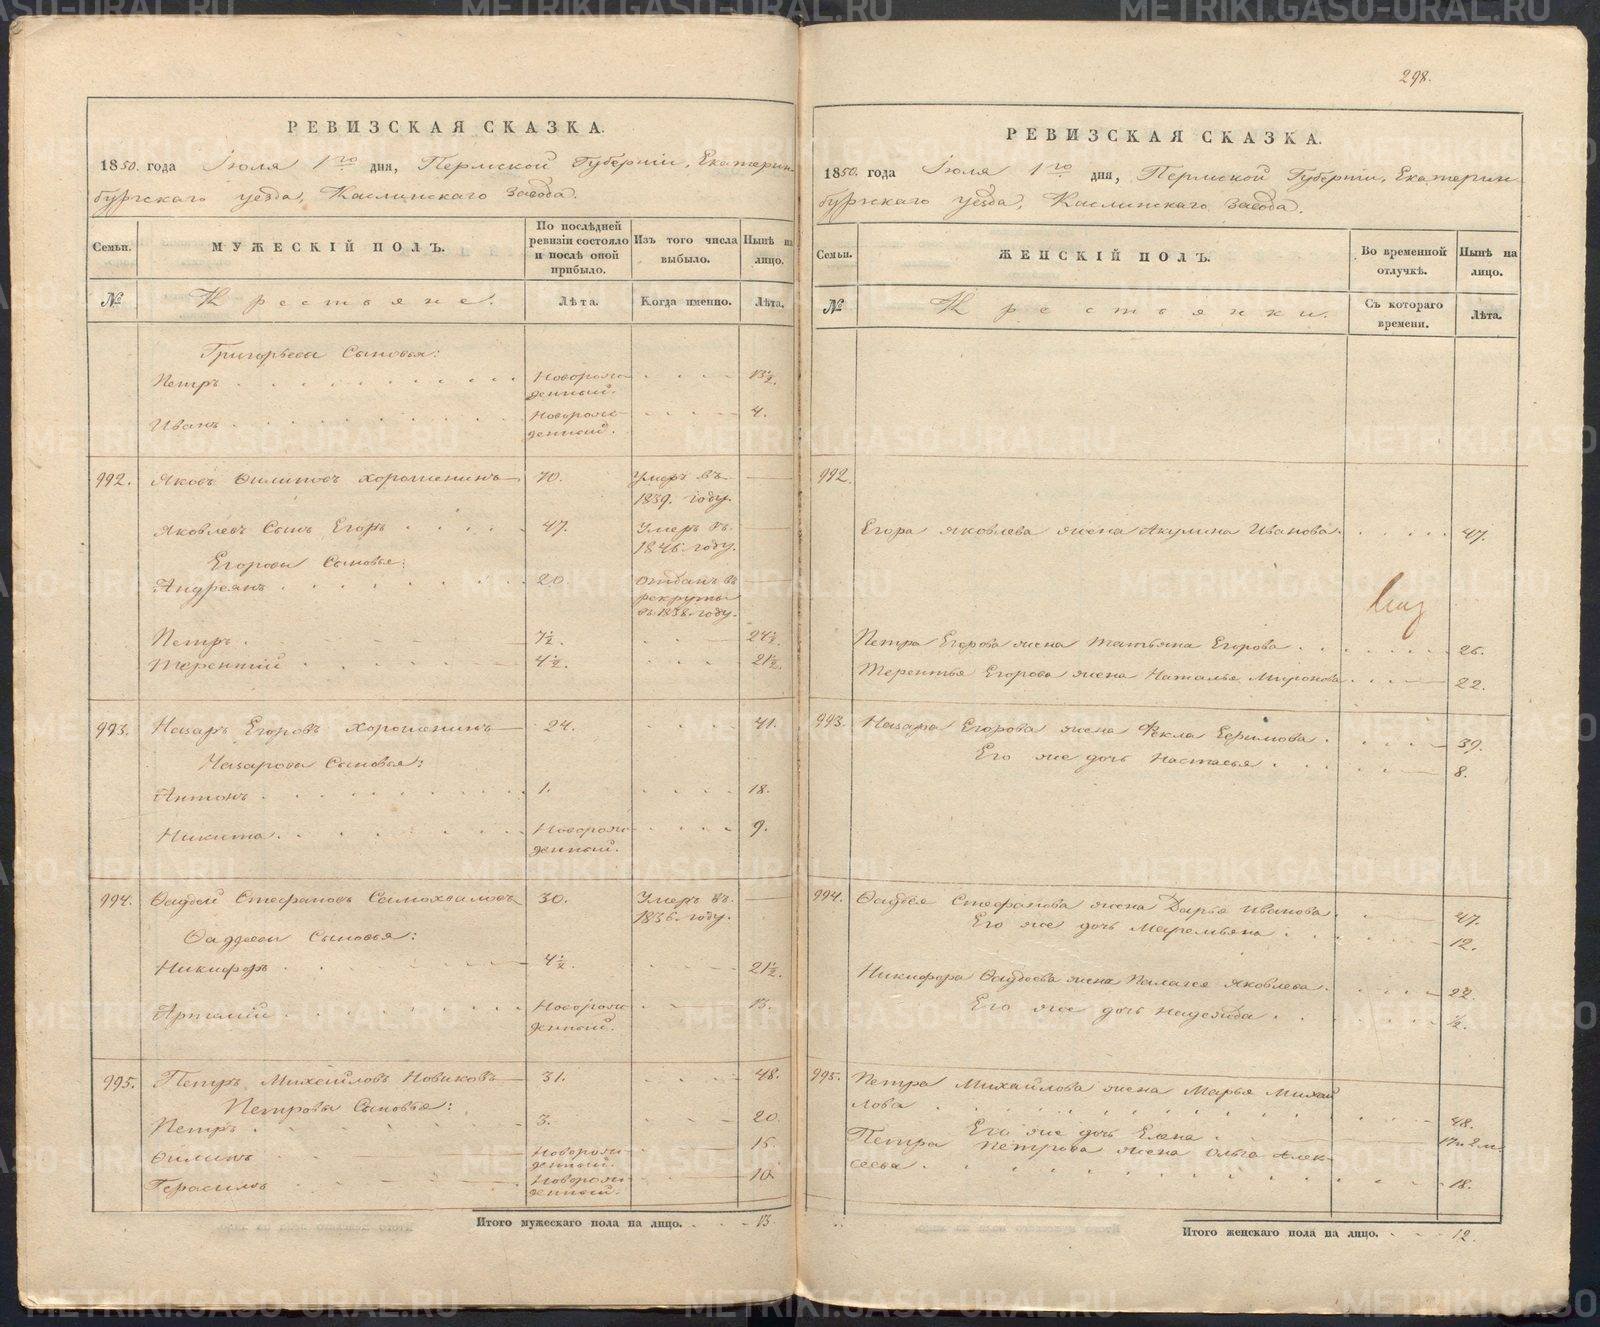 298.
РЕВИЗСКАЯ СКАЗКА.
1850. года Іюля 1го дня, Пермской Губерніи, Екатерин-
бургскаго уезда, Каслинскаго Завода.
Семьи. МУЖЕСКІЙ ПОЛЪ. По послѣдней ревизіи состояло и послѣ оной прибыло. Изъ того числа выбыло. Нынѣ на лицо.
№ Крестьяне. Лѣта. Когда именно. Лѣта.
Григорьева Сыновья:
Петръ Новорож-
денный. 13½.
Иванъ Новорож-
денный. 4.
992. Яковъ Филиповъ Хорошенинъ 70. Умеръ въ
1839. году.
Яковлевъ Сынъ Егоръ 47. Умеръ въ
1846. году.
Егоровы Сыновья:
Андреянъ 20. Отданъ въ
рекруты
въ 1838. году.
Петръ 7½. 24½.
Терентий 4½. 21½.
993. Назаръ Егоровъ Хорошенинъ 24. 41.
Назаровы Сыновья:
Антонъ 1. 18.
Никита Новорож-
денный. 9.
994. Фадей Стефановъ Самохваловъ 30. Умеръ въ
1836. году.
Фаддеевы Сыновья:
Никифоръ 4½. 21½.
Артамий Новорож-
денный. 15.
995. Петръ Михайловъ Новиковъ 31. 48.
Петровы Сыновья:
Петръ 3. 20
Филипъ Новорож-
денный. 15.
Герасимъ Новорож-
денный. 10.
Итого мужескаго пола на лицо. 13.
РЕВИЗСКАЯ СКАЗКА.
1850. года Іюля 1го дня, Пермской Губерніи, Екатерин-
бургскаго уезда, Каслинскаго Завода.
Семьи. ЖЕНСКІЙ ПОЛЪ. Во временной отлучкѣ. Нынѣ на лицо.
№ Крестьянки. Съ котораго времени. Лѣта.
992.
Егора Яковлева жена Акулина Иванова 47.
Петра Егорова жена Татьяна Егорова 26.
Терентья Егорова жена Наталья Миронова 22.
993. Назара Егорова жена Фекла Ефимова 39.
Его же дочь Настасья 8.
994. Фадѣя Стефанова жена Дарья Иванова 47.
Его же дочь Маремьяна 12.
Никифора Фадѣева жена Палагея Яковлева 22.
Его же дочь Надежда ½.
995. Петра Михайлова жена Марья Михай
лова 48.
Его же дочь Елена 17 и 2 м.
Петра Петрова жена Ольга Алек-
сеева 18.
Итого женскаго пола на лицо. 12.
METRIKI.GASO-URAL.RU